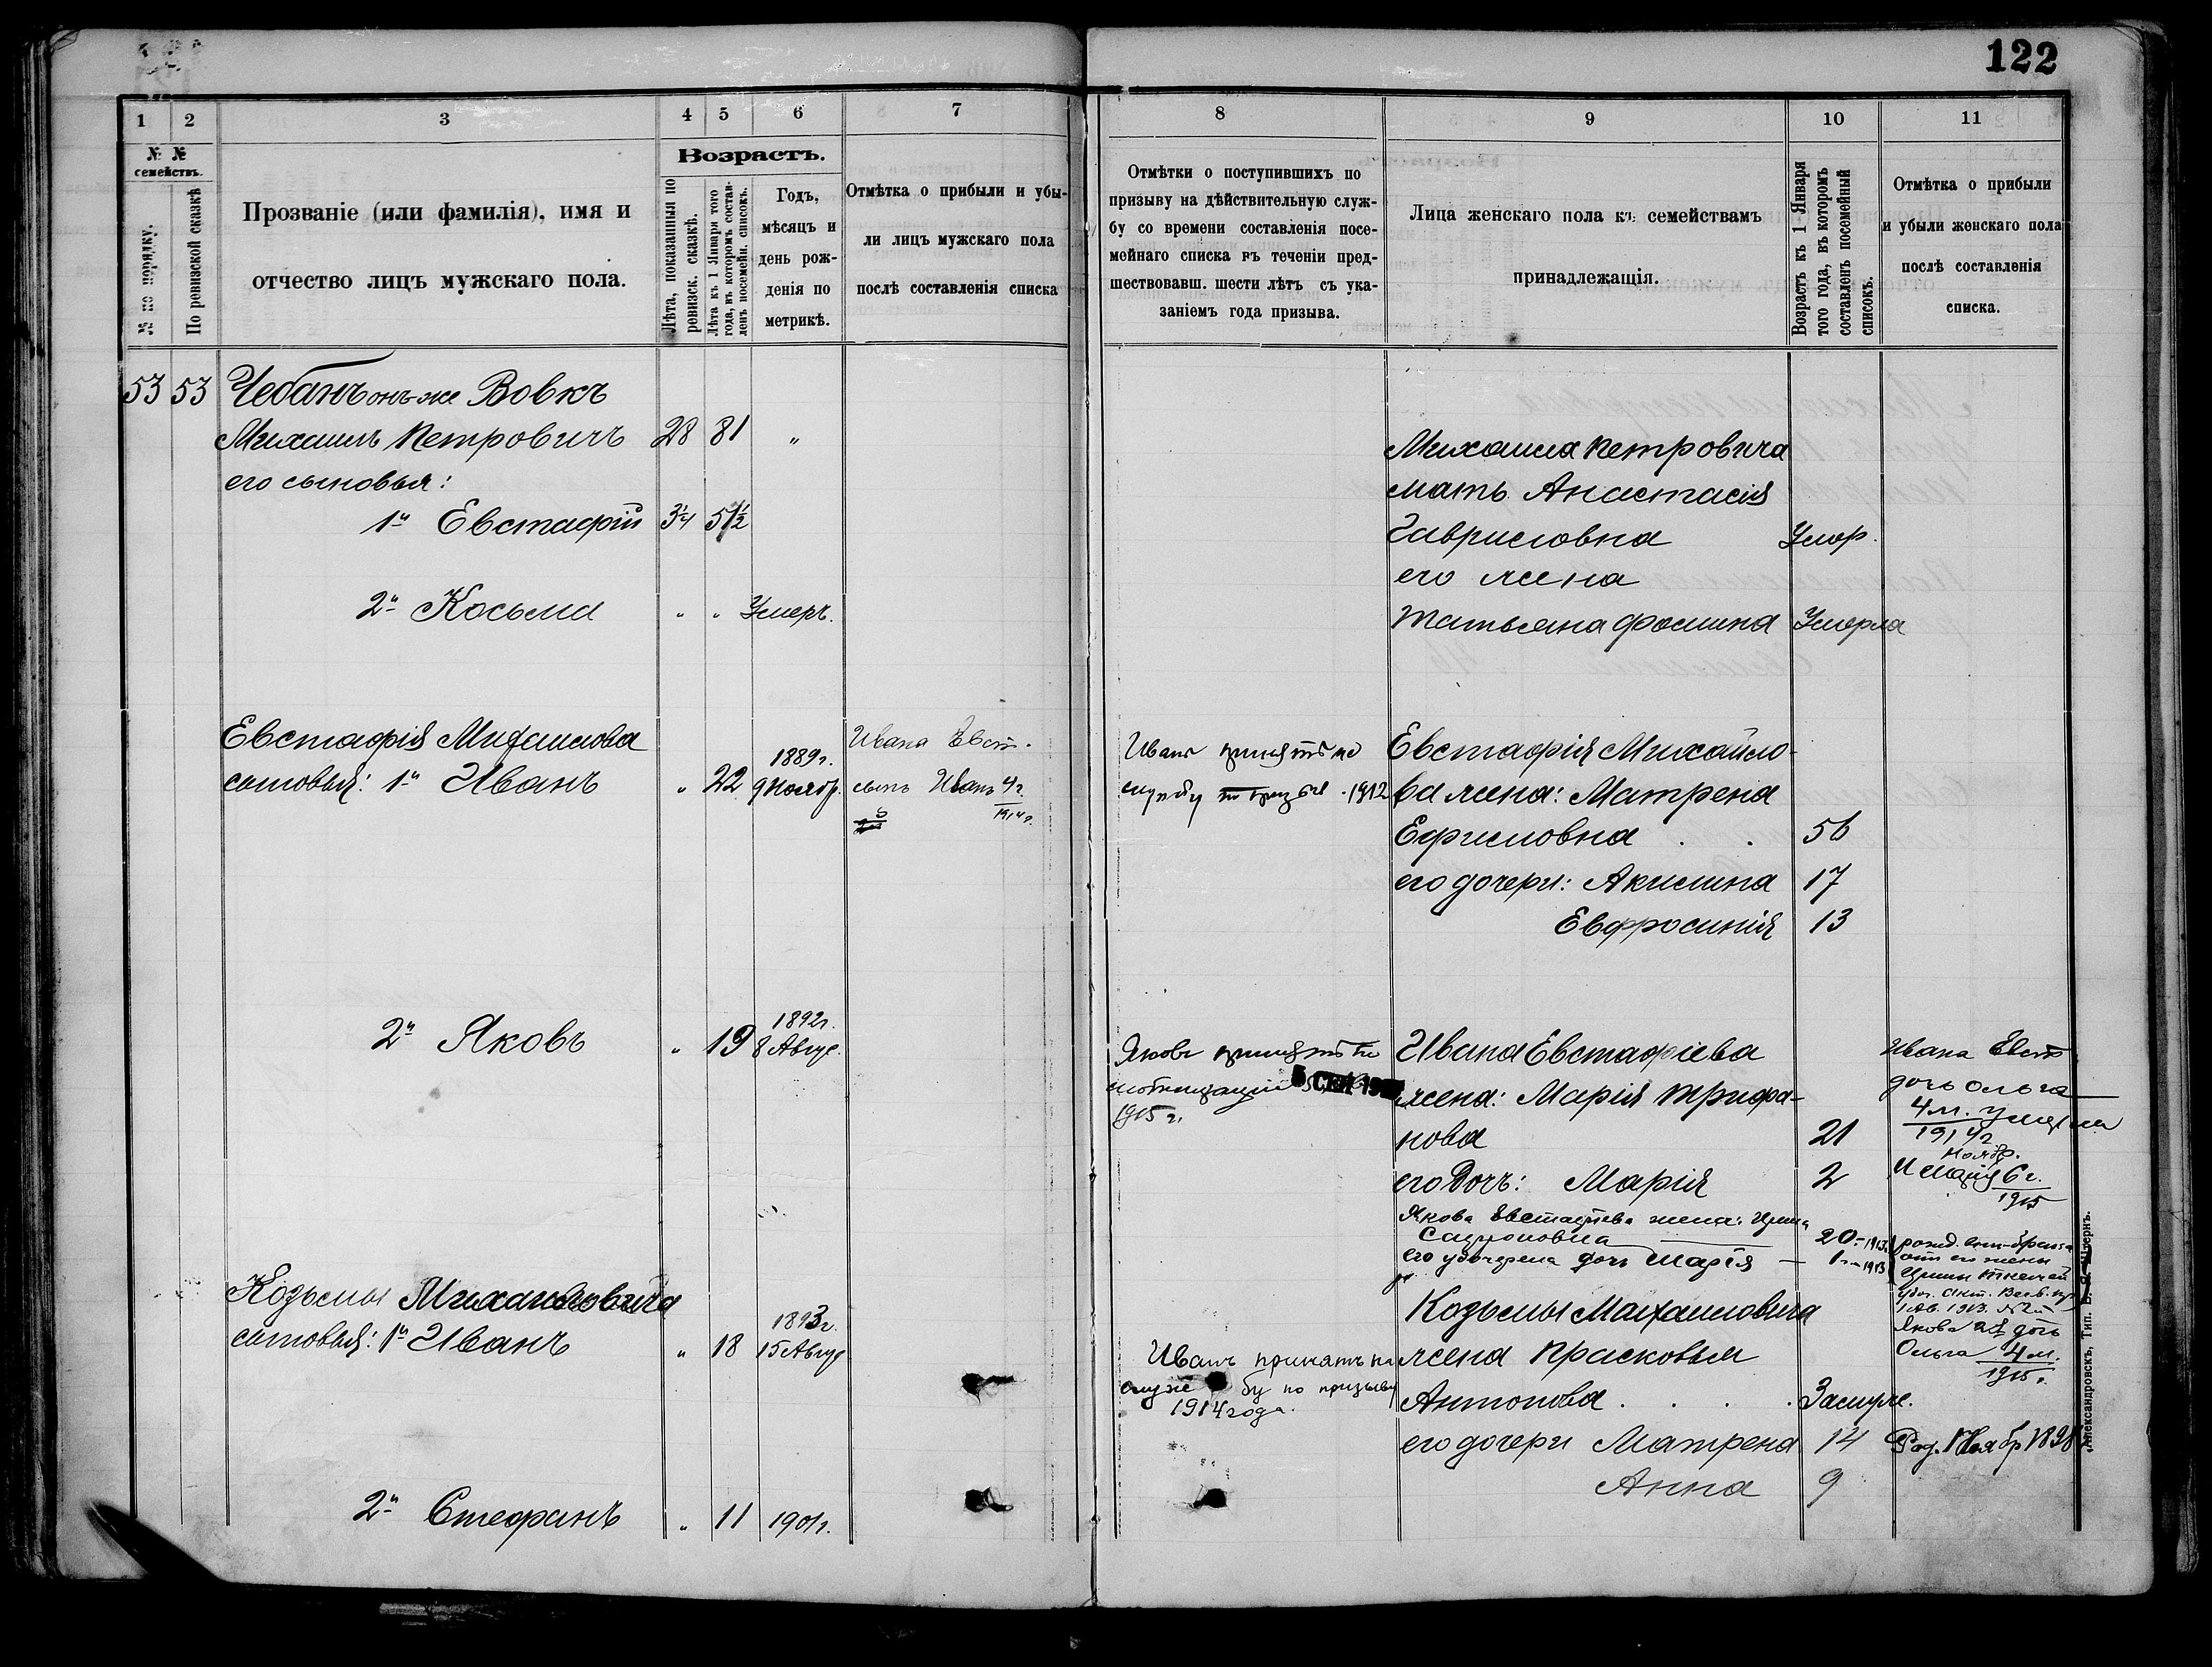 122
1 2 3 4 5 6 7
№ № семействъ.
№ по порядку.
По ревизской сказкѣ
Прозваніе (или фамилія), имя и
отчество лицъ мужскаго пола.
Возрастъ.
Лѣта, показанныя по
ревизск. сказкѣ.
Лѣта къ 1 Января того
года, въ которомъ состав-
ленъ посемейн. списокъ.
Годъ,
мѣсяцъ и
день рож-
денія по
метрикѣ.
Отмѣтка о прибыли и убы-
ли лицъ мужскаго пола
послѣ составленія списка
53 53 Чебанъ онъ-же Вовкъ
Михаилъ Петровичъ 28 81 "
его сыновья:
1й Евстафій 3¼ 51½
2й Косьма " " Умеръ.
Евстафія Михаилова
сыновья: 1й Иванъ " 22 1889г. 9 Ноябр.
Ивана Евст.
сынъ Иванъ 4г.
1914г.
2й Яковъ " 19 1892г. 8 Авгус.
Козьмы Михайловича
сыновья: 1й Иванъ " 18 1893г. 15 Авгус
2й Стефанъ " 11 1901г.
8 9 10 11
Отмѣтки о поступившихъ по
призыву на дѣйствительную служ-
бу со времени составленія посе-
мейнаго списка въ теченіи пред-
шествовавш. шести лѣтъ съ ука-
заніемъ года призыва.
Лица женскаго пола къ семействамъ
принадлежащія.
Возрастъ къ 1 Января
того года, въ которомъ
составленъ посемейный
списокъ.
Отмѣтка о прибыли
и убыли женскаго пола
послѣ составленія
списка.
Михаила Петровича
мать Анастасія
Гавриловна Умер.
его жена
Татьяна Фомина Умерла
Иванъ принятъ на
службу по призыв 1912
Евстафія Михайло-
ва жена: Матрена
Ефимовна . . 56
его дочери: Акилина 17
Евфросинія 13
Яковъ принятъ по
мобилизаціи 5 СЕН 19
1915 г.
Ивана Евстафіева
жена: Марія Трифо-
нова 21
его Дочъ: Марія 2
Якова Евстафіева жена: Ирина
20 1913
его удочерена дочь Марія — 1 1913
Ивана Евст
дочь Ольга
4м. умерла
1914г
Ноябр.
и Марія 6г.
1915
рожд. внѣ-брач
отъ его жены
Ирины
1 Ав. 1913. №
Якова 2я дочь
Ольга 4м.
1915г.
Козьмы Михаиловича
жена Прасковья
Антонова . . . . Замуже.
его дочери Матрена 14 Род. 1 Ноябр 1898
Анна 9
Иванъ принятъ на
служ бу по призыву
1914 года.
Александровскъ, Тип. Б. Я. Штернъ.